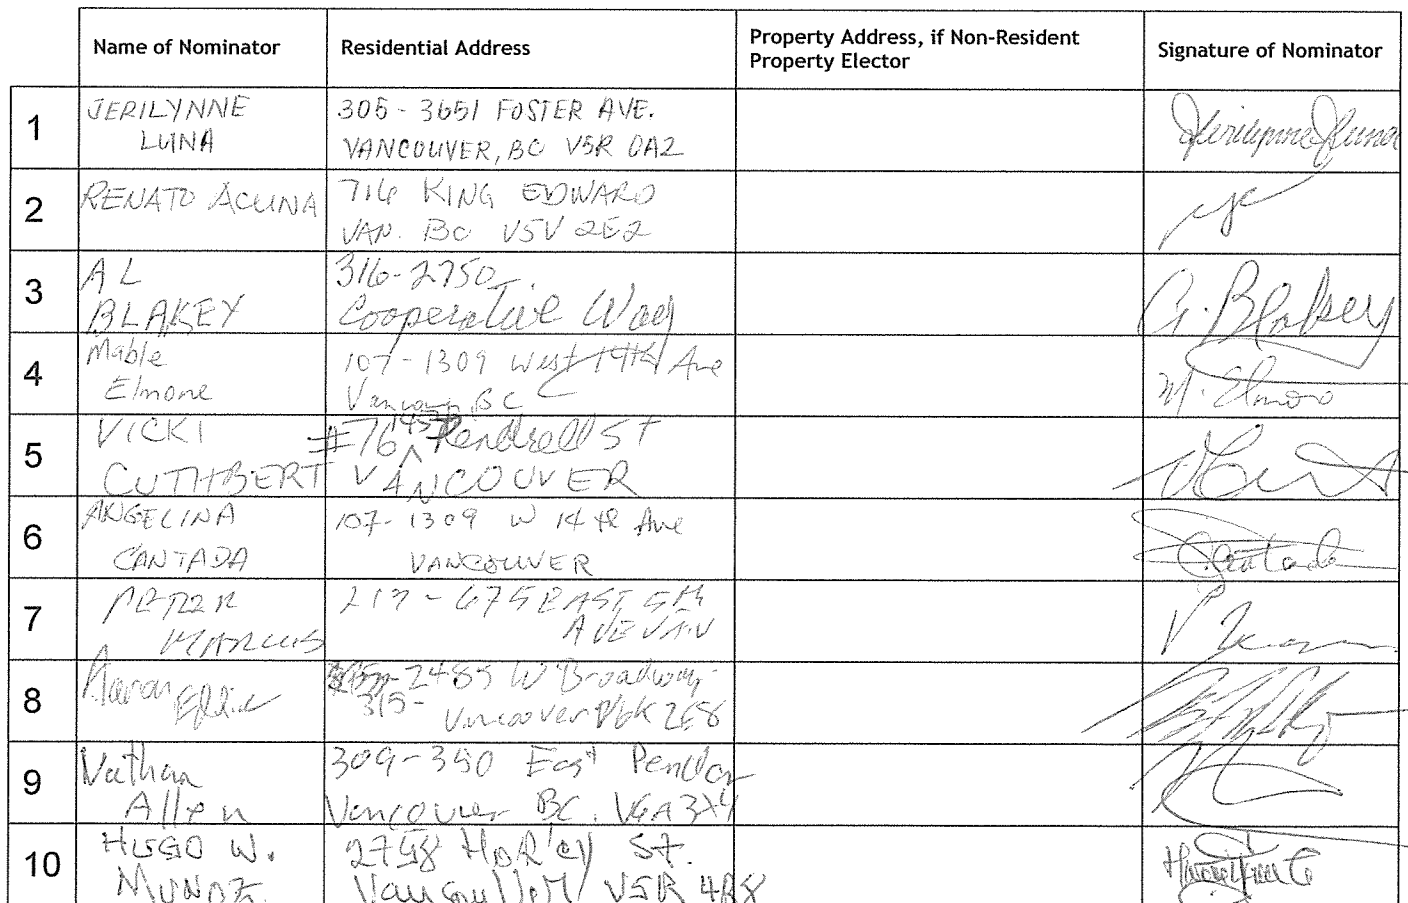 Name of Nominator
Residential Address
Property Address, if Non-Resident
Property Elector
Signature of Nominator
1
JERILYNNE
LUNA
305 - 3651 FOSTER AVE.
VANCOUVER, BC V5R 0A2
Jerilynne Luna
2
RENATO ACUNA
716 KING EDWARD
VAN. BC V5V 2E2
3
AL
BLAKEY
316-2750
Cooperative Way
A. Blakey
4
Mable
Elmore
107-1309 West 14th Ave
Vancouver, BC
M. Elmore
5
VICKI
CUTHBERT
#76 Pendrell St
VANCOUVER
6
ANGELINA
CANTADA
107-1309 W 14th Ave
VANCOUVER
7
PETER
MARCUS
217 - 675 EAST 5th
AVE VAN
8
Aaron
315- 2489 W Broadway
Vancouver V6K 2E8
9
Nathan
Allen
309-390 East Pender
Vancouver BC. V6A 3X4
10
HUGO W.
MUNOZ
2758 Horley St.
Vancouver V5R 4R8